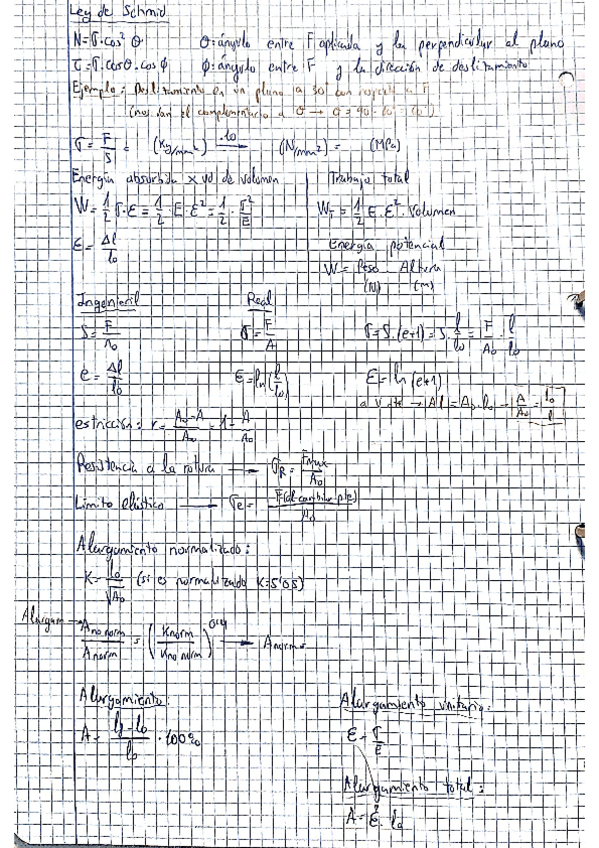 Ley de Schmid
N=σ·cos² θ    θ=ángulo entre F aplicada y la perpendicular al plano
τ=σ·cosθ·cosϕ    ϕ=ángulo entre F y la dirección de deslizamiento
Ejemplo: Deslizamiento en un plano a 30° con respecto a F
(nos dan el complementario a θ → θ=90-
σ = F/S = (Kg/mm²) →·10 (N/mm²) = (MPa)
Energía absorbida x ud de volumen    Trabajo total
W=1/2 σ·ε=1/2·E·ε²=1/2·σ²/E    W_T=1/2 E·ε²·Volumen
ε=Δl/l₀    Energía potencial
W= Peso · Altura
(N) (m)
Ingenieril    Real
S=F/A₀    σ=F/A    σ=S·(e+1)=S·l/l₀=F/A₀·l/l₀
e=Δl/l₀    ε=ln(l/l₀)    ε=ln(e+1)
a V cte → Al=A₀·l₀ → A/A₀=l₀/l
estricción: r=A₀-A/A₀=1-A/A₀
Resistencia a la rotura → σ_R=Fmax/A₀
Limite elástico → σe=F(al cambiar pte)/A₀
Alargamiento normalizado:
K=l₀/√A₀ (si es normalizado K=5'65)
Alargam → A no norm/A norm=(K norm/K no norm)^0'4 → A norm=
Alargamiento:    Alargamiento unitario:
A=lf-l₀/l₀·100%    ε=σ/E
Alargamiento total:
A=ε·l₀